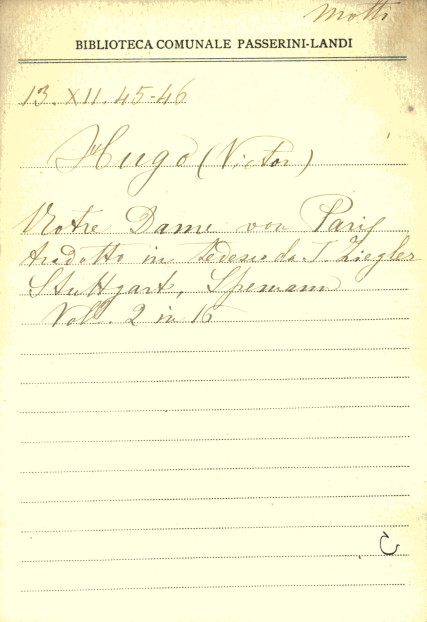 Motti
BIBLIOTECA COMUNALE PASSERINI-LANDI
13. XII. 45-46
Hugo (Victor)
Notre Dame von Paris
tradotto in tedesco da T. Ziegler
Stuttgart, Spemann
Vol. 2 in 16